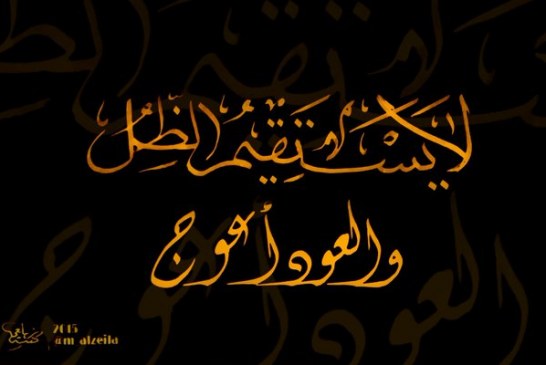 لا يَسْتَقِيمُ الظِّلُ
والعود أعوج
2015
am alzeila